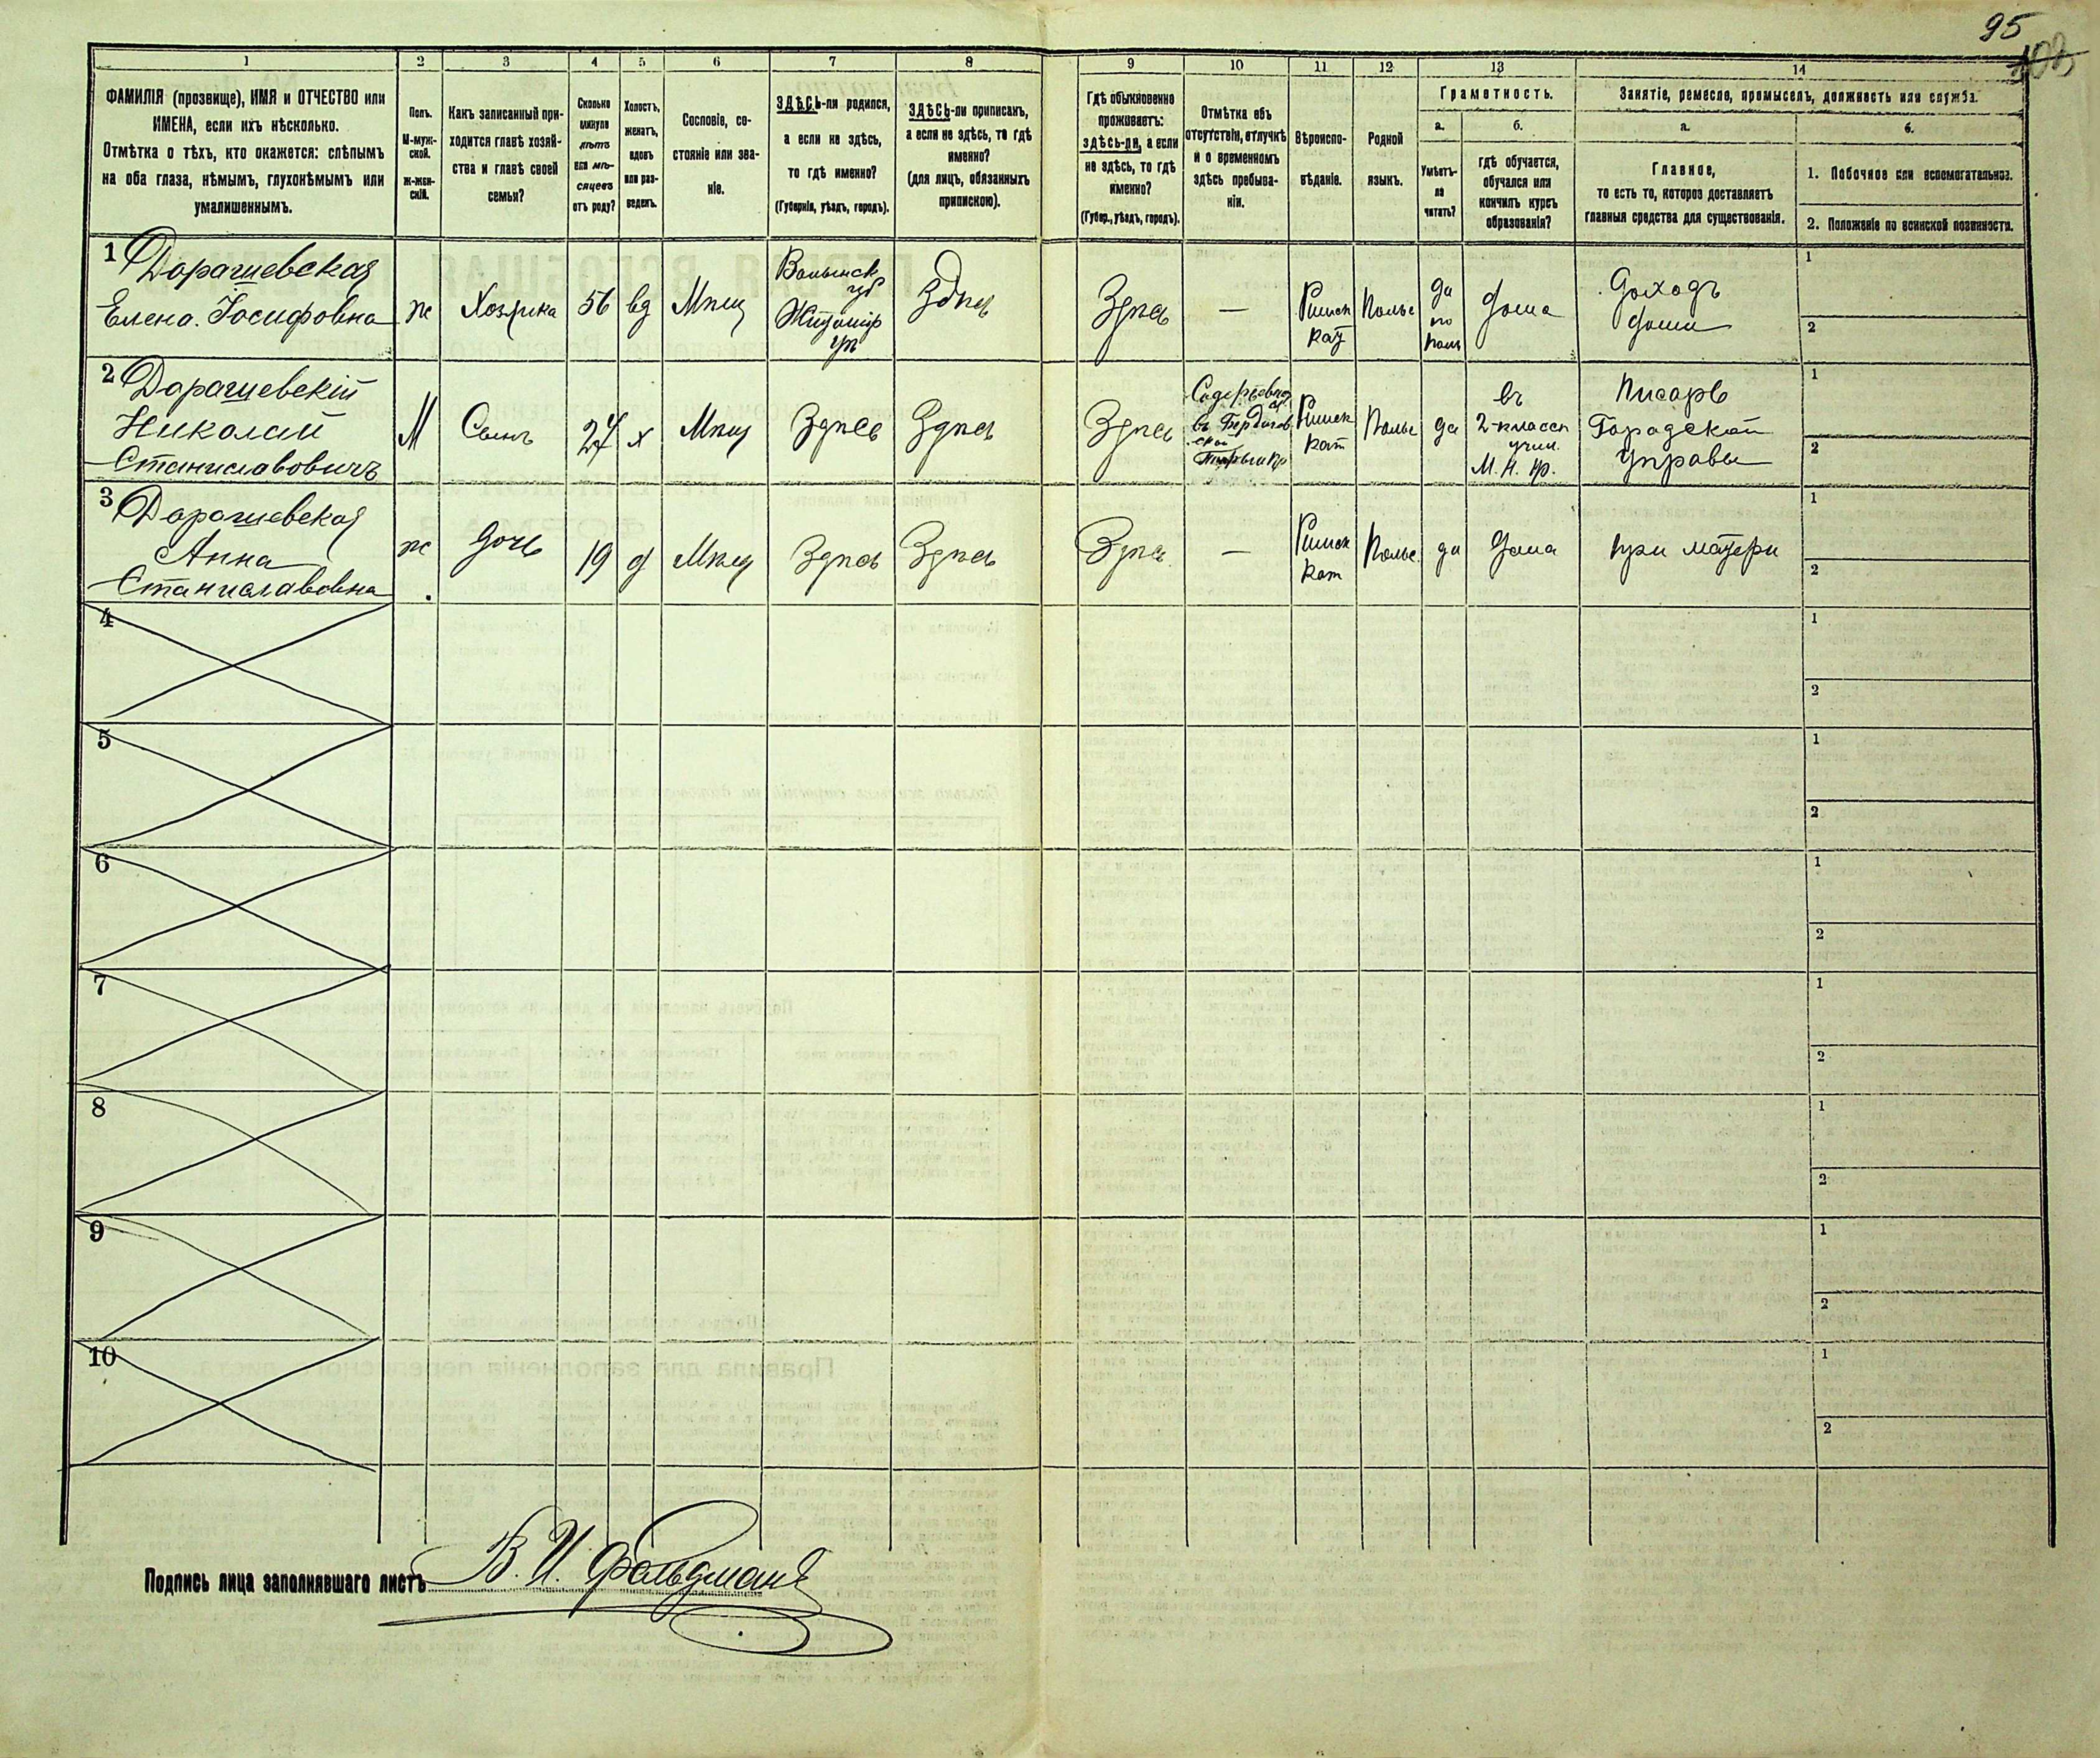 95
1
2
3
4
5
6
7
8
9
10
11
12
13
14
ФАМИЛІЯ (прозвище), ИМЯ и ОТЧЕСТВО или
ИМЕНА, если ихъ нѣсколько.
Отмѣтка о тѣхъ, кто окажется: слѣпымъ
на оба глаза, нѣмымъ, глухонѣмымъ или
умалишеннымъ.
Полъ.
М-муж-
ской.
Ж-жен-
скій.
Какъ записанный при-
ходится главѣ хозяй-
ства и главѣ своей
семьи?
Сколько
минуло
лѣтъ
или мѣ-
сяцевъ
отъ роду?
Холостъ,
женатъ,
вдовъ
или раз-
веденъ.
Сословіе, со-
стояніе или зва-
ніе.
ЗДѢСЬ-ли родился,
а если не здѣсь,
то гдѣ именно?
(Губернія, уѣздъ, городъ).
ЗДѢСЬ-ли приписанъ,
а если не здѣсь, то гдѣ
именно?
(для лицъ, обязанныхъ
припискою).
Гдѣ обыкновенно
проживаетъ:
здѣсь-ли, а если
не здѣсь, то гдѣ
именно?
(Губер., уѣздъ, городъ).
Отмѣтка объ
отсутствіи, отлучкѣ
и о временномъ
здѣсь пребыва-
ніи.
Вѣроиспо-
вѣданіе.
Родной
языкъ.
Грамотность.
а.
Умѣетъ-
ли
читать?
б.
гдѣ обучается,
обучался или
кончилъ курсъ
образованія?
Занятіе, ремесло, промыселъ, должность или служба.
а.
Главное,
то есть то, которое доставляетъ
главныя средства для существованія.
б.
1. Побочное или вспомогательное.
2. Положеніе по воинской повинности.
1 Дорашевская
Елена Іосифовна
ж
Хозяйка
56
вд
Мѣщ
Волынск
губ
Житомір
уѣ
Здѣсь
Здѣсь
—
Римск
кат
Польс
да
по
поль
дома
Доходъ
дома
1
2
2 Дорашевскій
Николай
Станиславовичъ
М
Сынъ
27
х
Мѣщ
Здѣсь
Здѣсь
Здѣсь
въ Бердичев
ской
Римск
кат
Польс
да
въ
2-классн
учил.
М. Н. пр.
Писарь
Городской
управы
1
2
3 Дорашевская
Анна
Станиславовна
ж
Дочь
19
д
Мѣщ
Здѣсь
Здѣсь
Здѣсь
—
Римск
кат
Польс
да
Дома
при матери
1
2
4
1
2
5
1
2
6
1
2
7
1
2
8
1
2
9
1
2
10
1
2
Подпись лица заполнявшаго листъ В. И. Фельдманъ